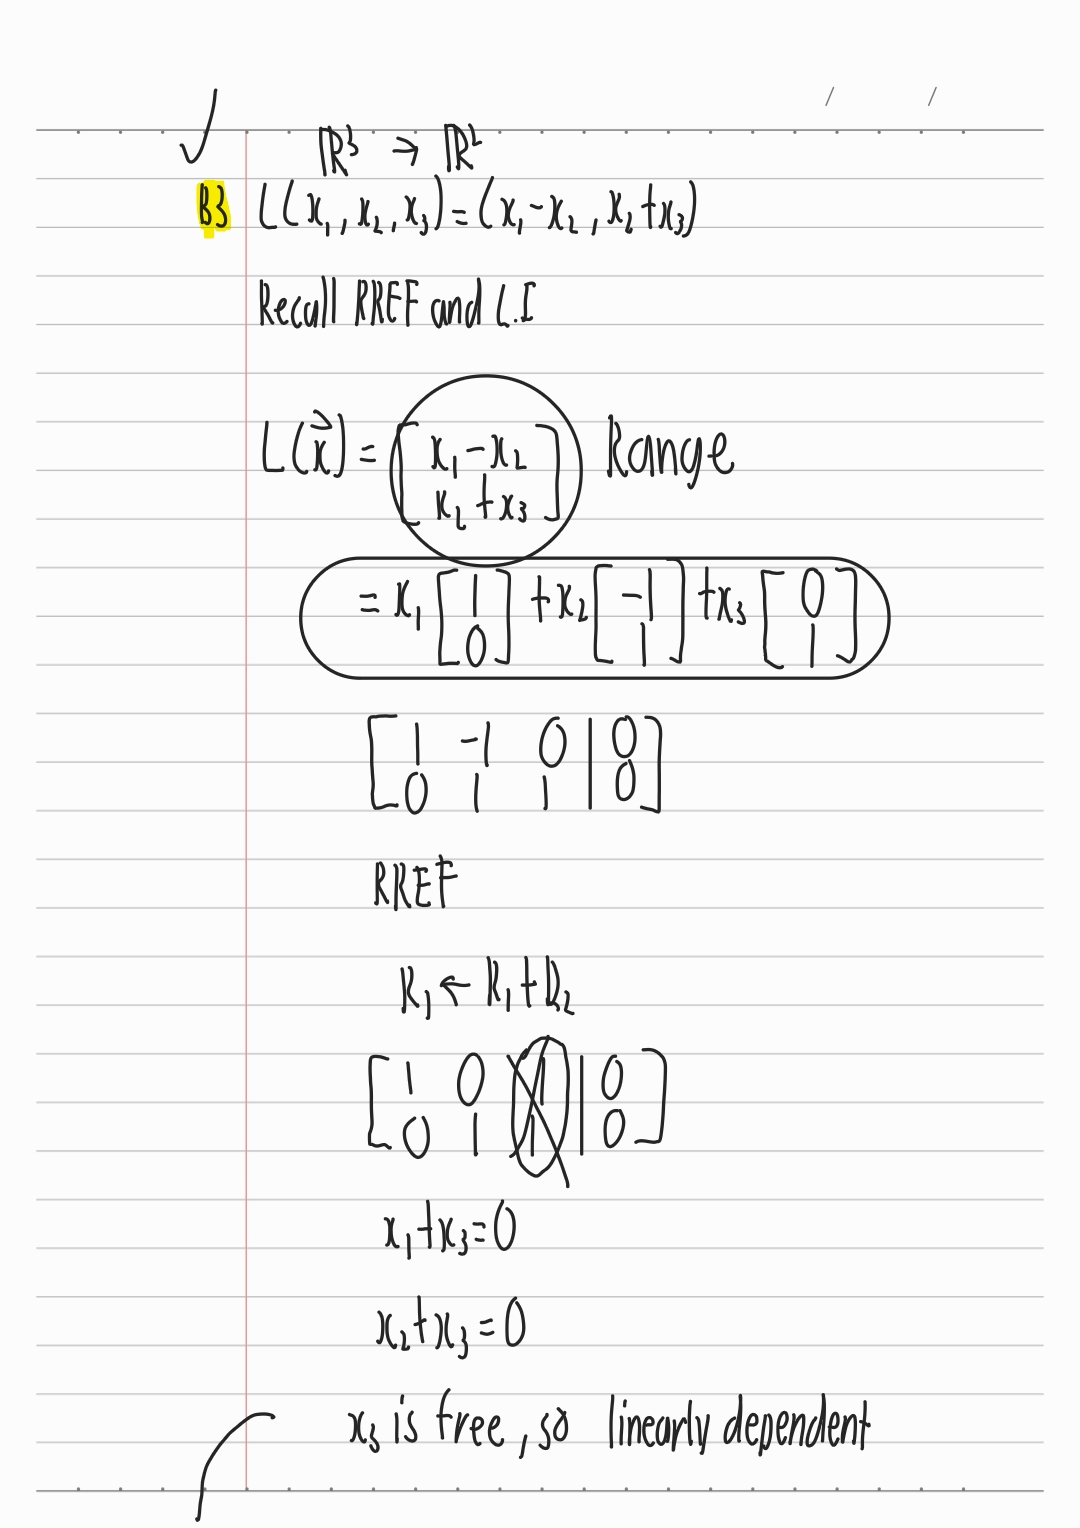 / /
✓
ℝ³ → ℝ²
B3 L(x₁, x₂, x₃) = (x₁ - x₂, x₂ + x₃)
Recall RREF and L.I
L(x⃗) = [x₁ - x₂
x₂ + x₃] Range
= x₁ [1 0] + x₂ [-1 1] + x₃ [0 1]
[1 -1 0 | 0
0 1 1 | 0]
RREF
R₁ ← R₁ + R₂
[1 0 1 | 0
0 1 1 | 0]
x₁ + x₃ = 0
x₂ + x₃ = 0
x₃ is free, so linearly dependent